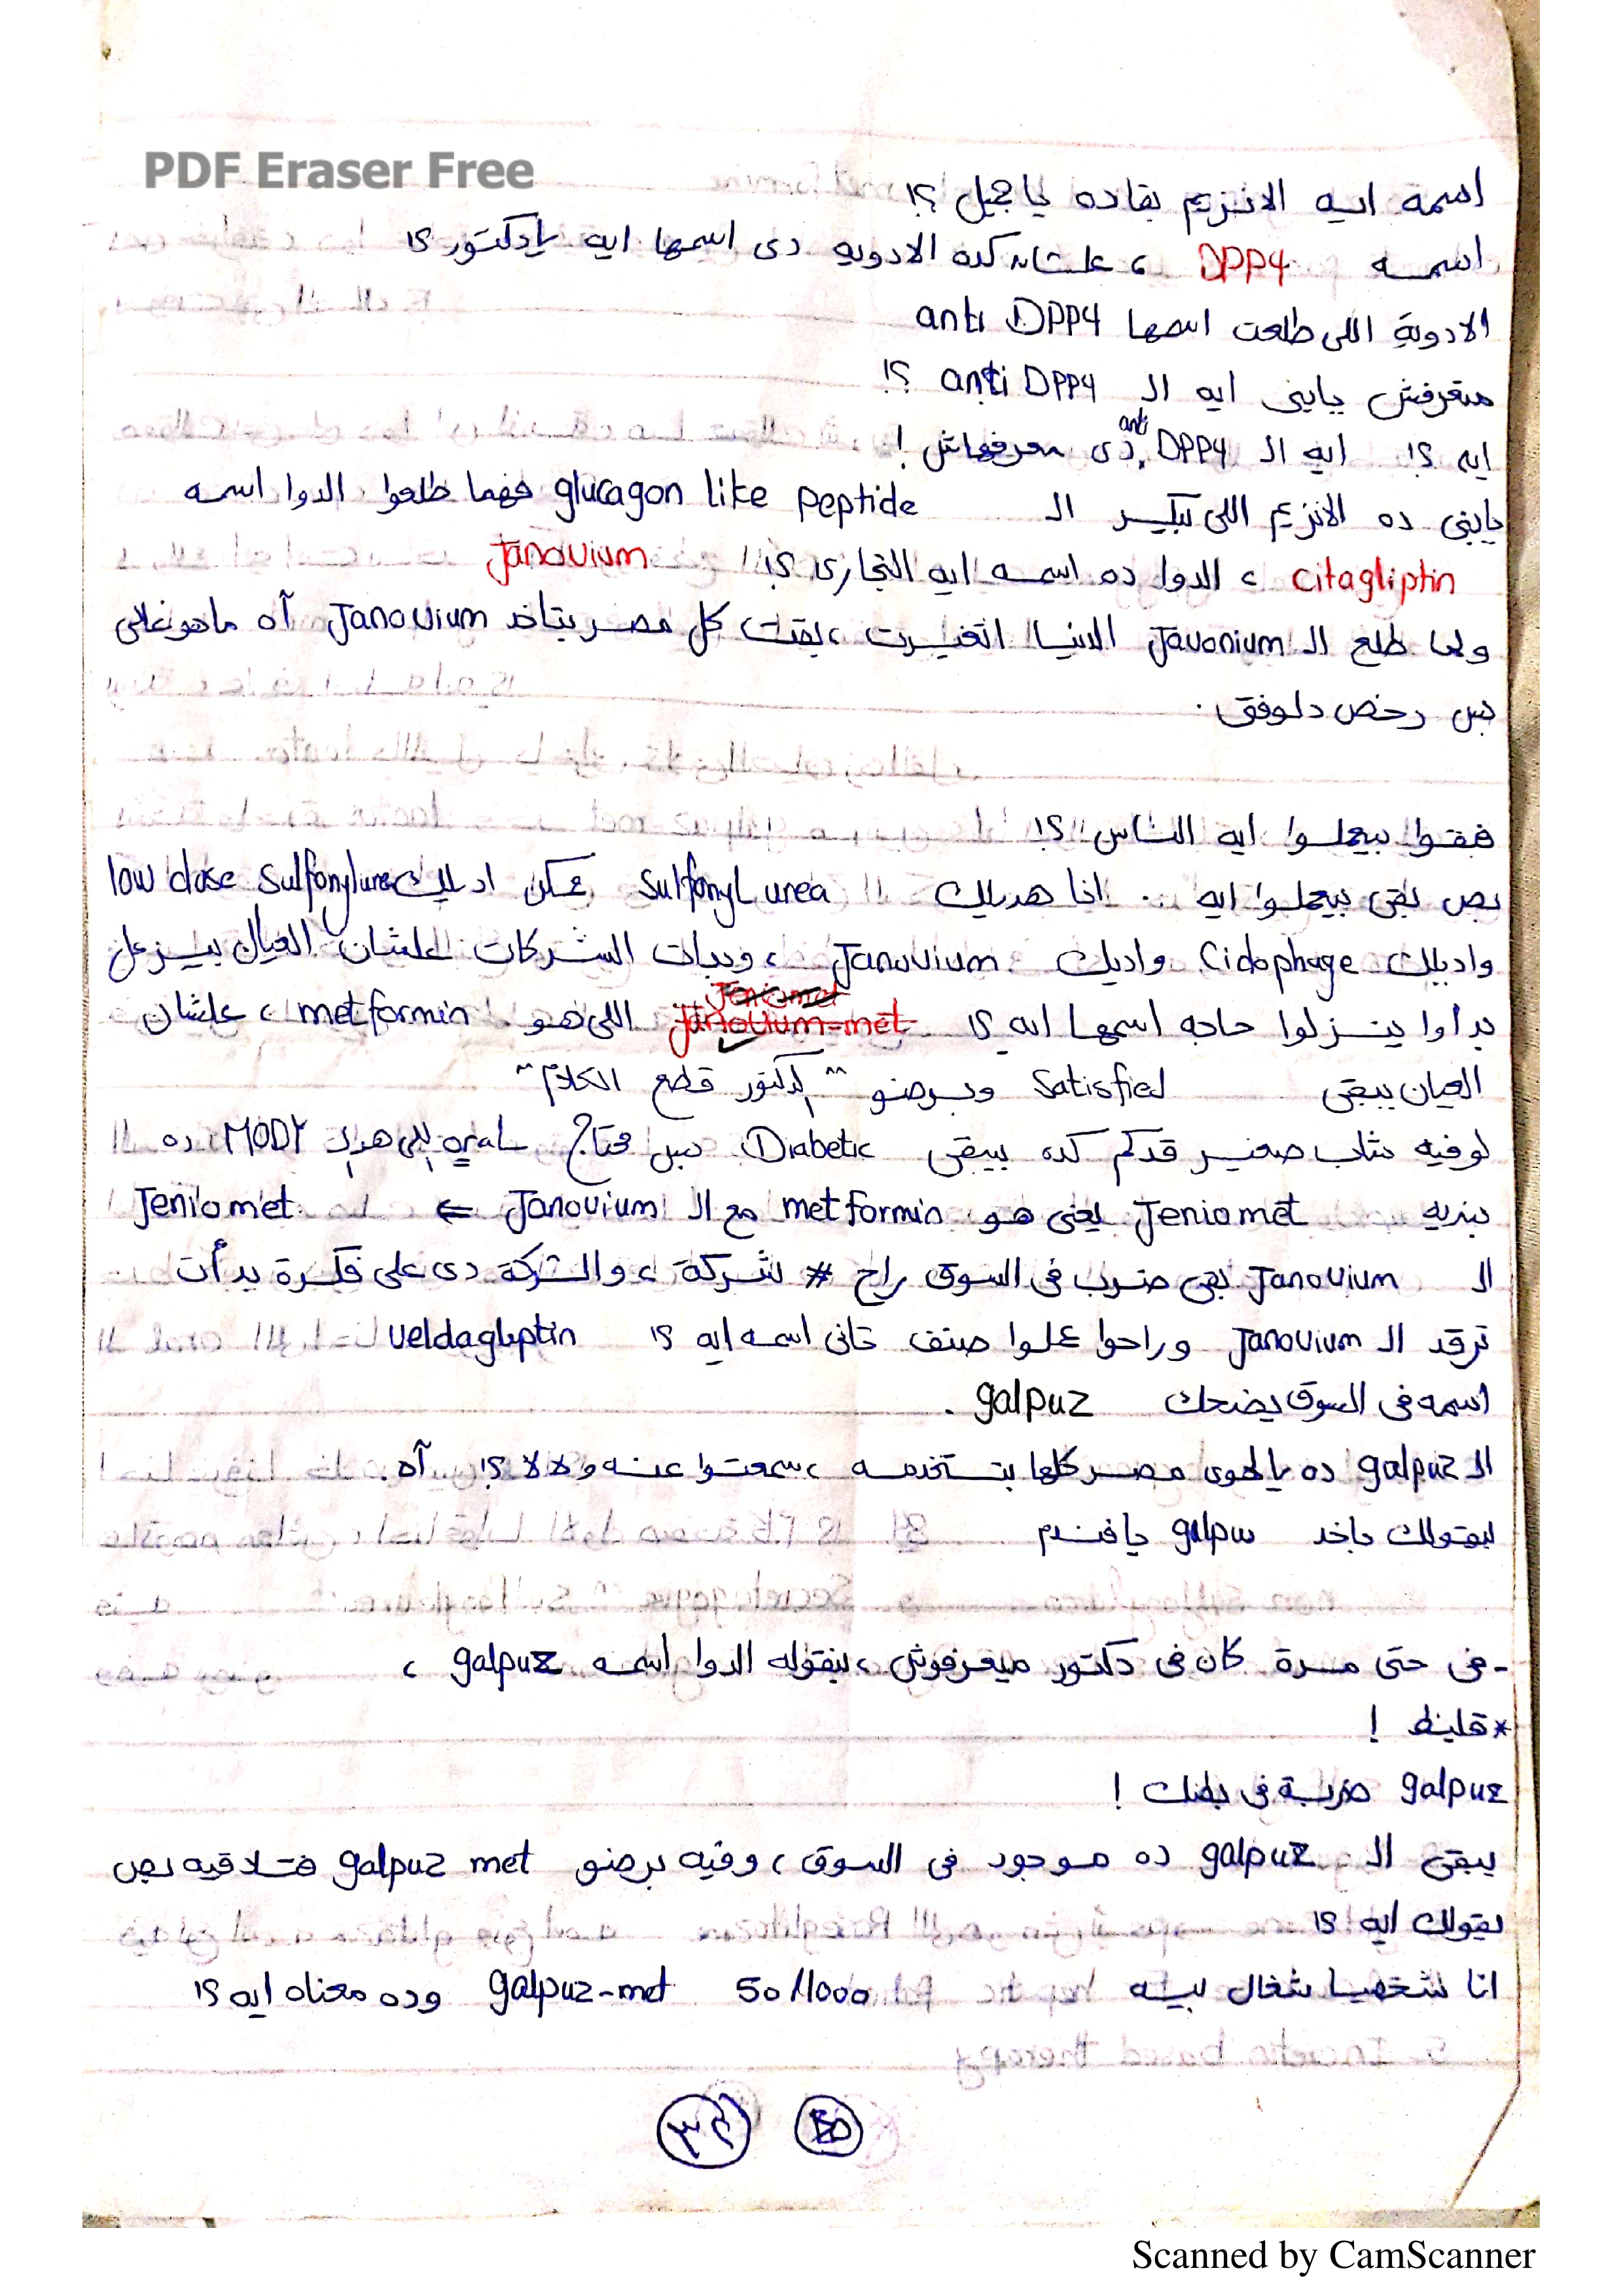 PDF Eraser Free
اسمه ايه الانزيم بقاده يا جميل ؟!
اسمه DPP4 ، علشان كده الادويه دى اسمها ايه يادكتور ؟!
الادوية اللى طلعت اسمها anti DPP4
متعرفش يابنى ايه الـ anti DPP4 ؟!
ايه ؟! ايه الـ anti DPP4 دى معرفهاش !
يابنى ده الانزيم اللى بيكسر الـ glucagon like peptide فهما طلعوا الدوا اسمه
citagliptin ، الدوا ده اسمه ايه التجارى ؟! Janovium
ولما طلع الـ Javonium الدنيا اتغيرت ، بقت كل مصر بتاخد Janovium آه ماهو غلى
بس رخص دلوقتى .
فبقوا بيعملوا ايه الناس ؟!
بص بقى بيعملوا ايه .. انا هديلك sulfonyl urea ممكن اديلك low dose sulfonylurea
واديلك Cidophage واديك Janovium ، وبدأت الشركات علشان العيال بيزعل
بدأوا ينزلوا حاجه اسمها ايه ؟! اللى هو metformin ، علشان
العيان يبقى satisfied وبرضو "الدكتور قطع الكلام"
لو فيه شاب صغير قدكم كده بيبقى Diabetic بس محتاج oral اللى هو الـ MODY ده
بنديه Jeniomet يعنى هو metformin مع الـ Janovium ⇐ Jeniomet
الـ Janovium بقى ضرب فى السوق راح # شركة ، والشركة دى على فكرة بدأت
ترقد الـ Janovium وراحوا عملوا صنف تانى اسمه ايه ؟! veldagliptin
اسمه فى السوق يضحك galpuz .
الـ galpuz ده يالهوى مصر كلها بتستخدمه ، سمعتوا عنه ولا لا ؟! آه .
ليقولك باخد galpuz يا فندم
- فى حتى مرة كان فى دكتور ميعرفوش ، بيقوله الدوا اسمه galpuz ،
* قليظ !
galpuz ضربة فى بطنك !
يبقى الـ galpuz ده موجود فى السوق ، وفيه برضو galpuz met هتلاقيه بص
يقولك ايه ؟!
انا شخصيا شغال بيه galpuz-met 50/1000 وده معناه ايه ؟!
Scanned by CamScanner